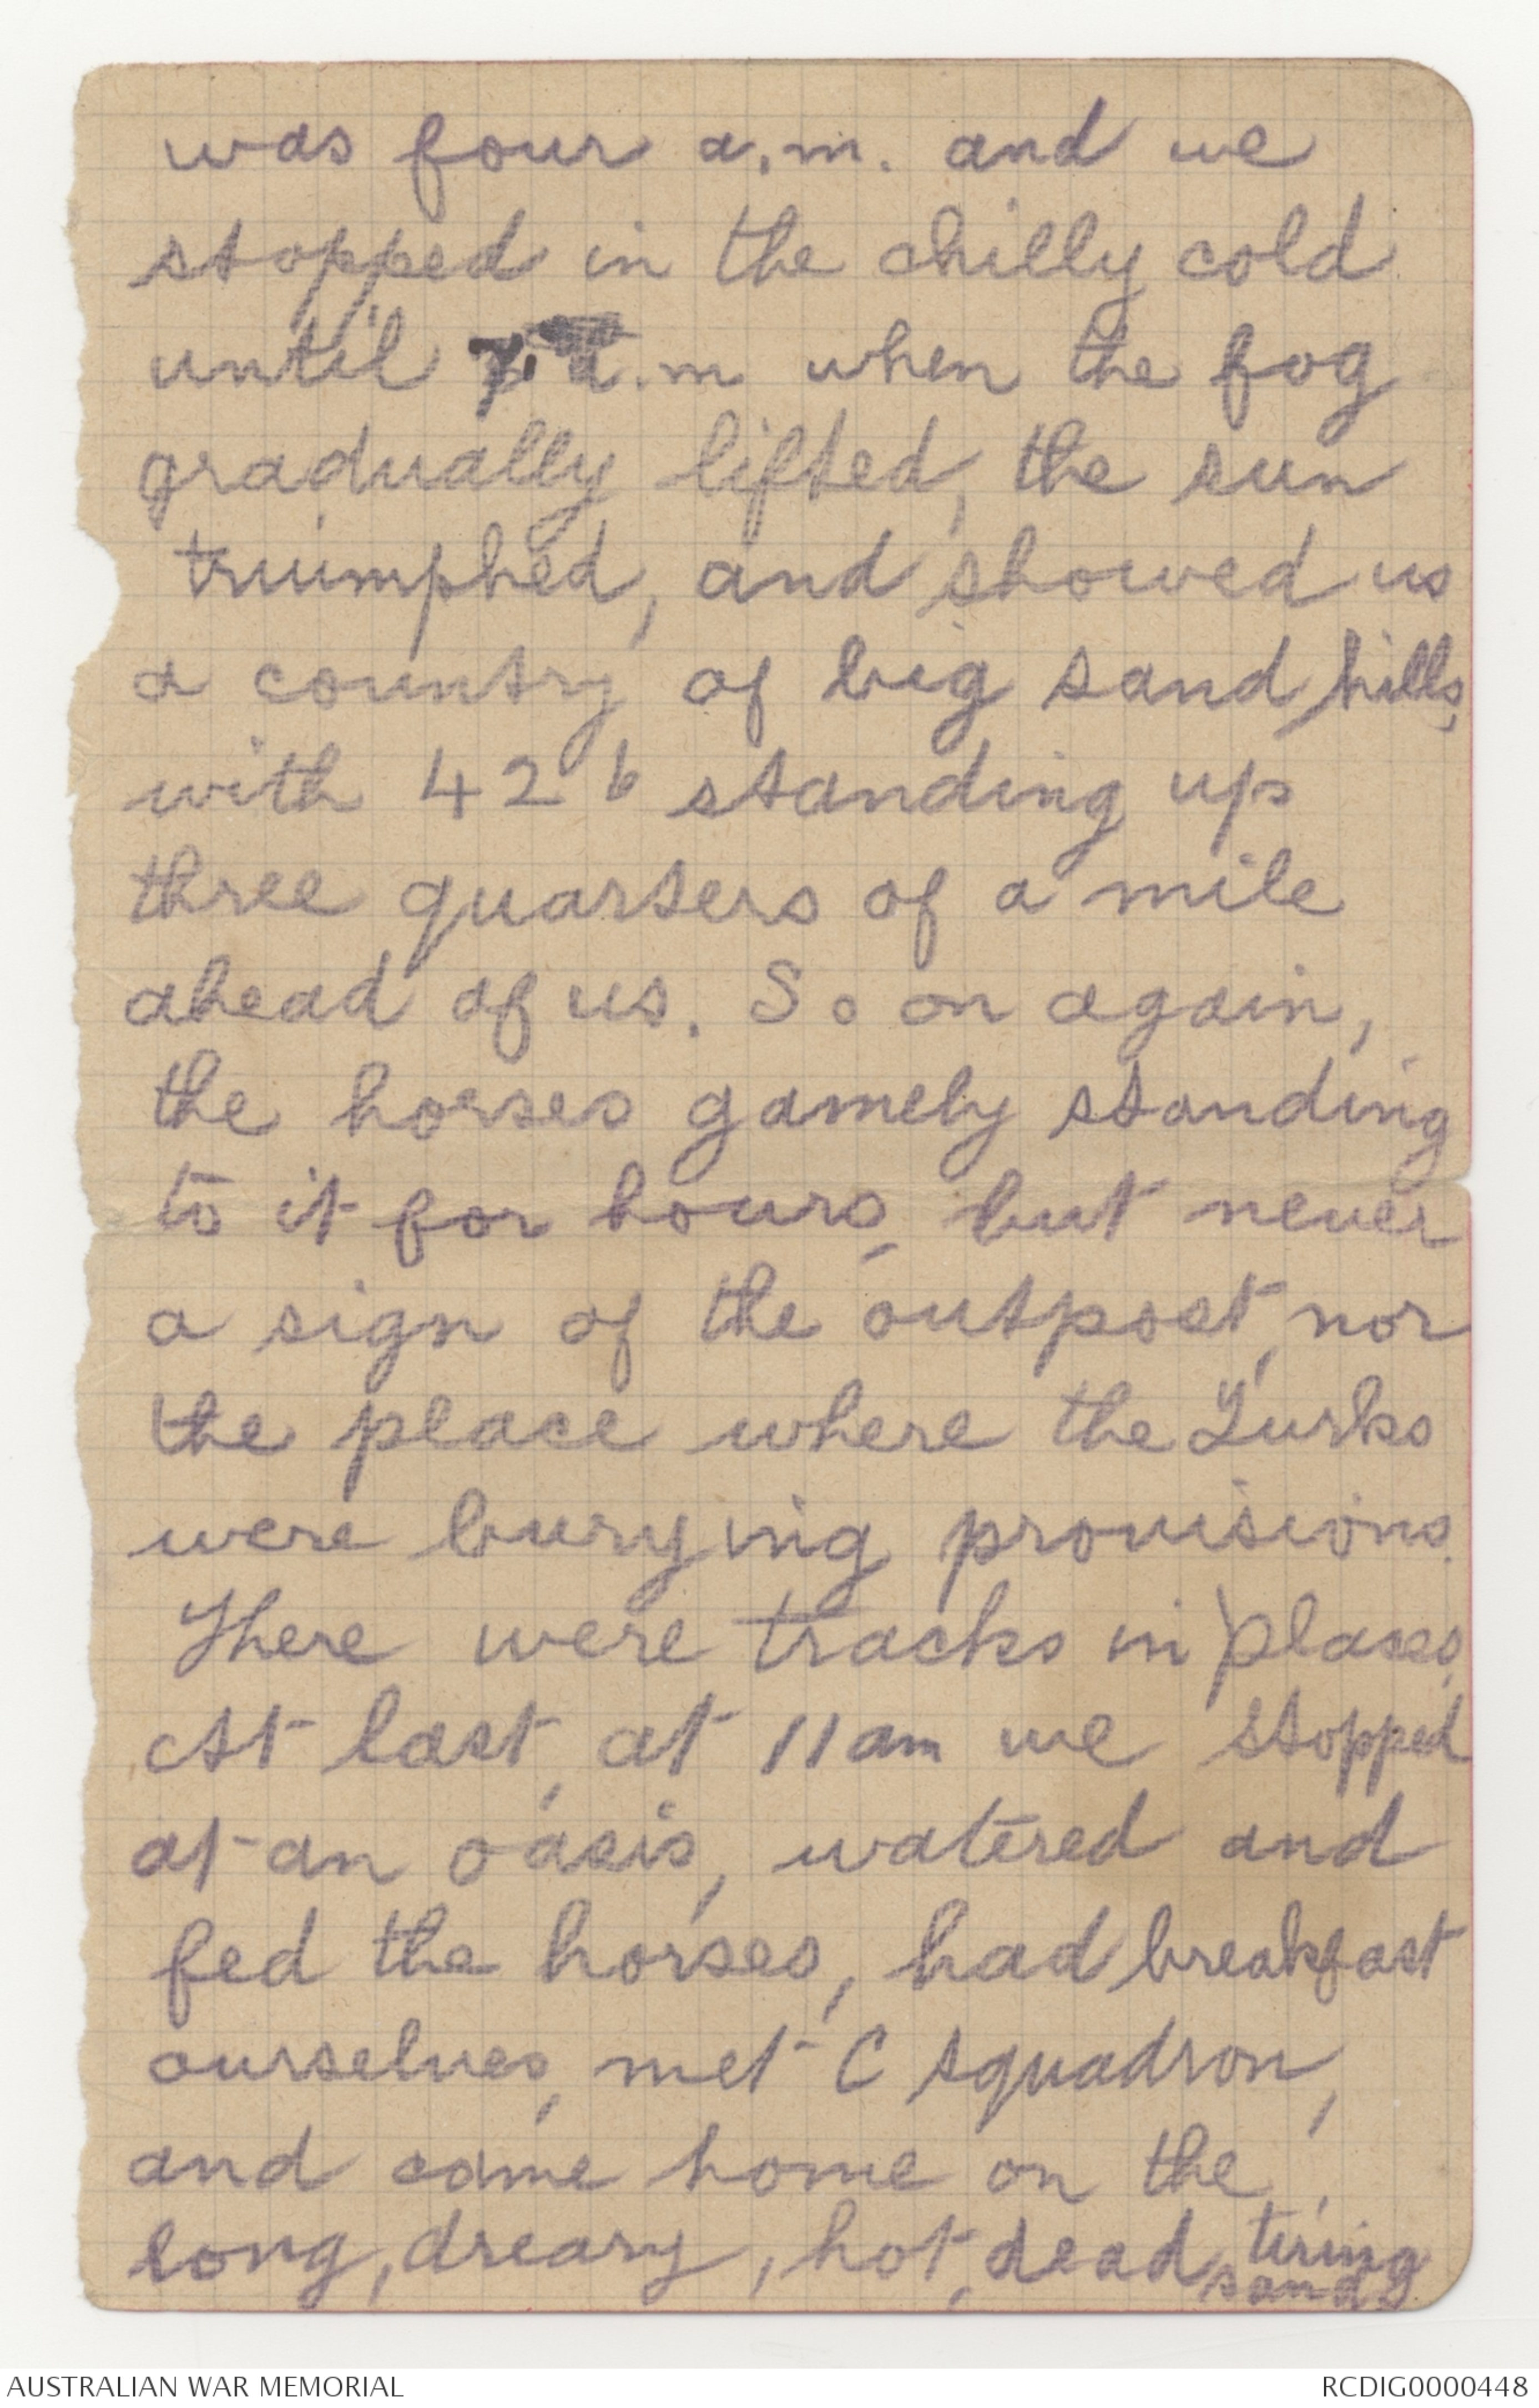 was four a.m. and we
stopped in the chilly cold
until 7 a.m when the fog
gradually lifted, the sun
truimphed, and showed us
a country of big sand hills,
with 426 standing up
three quarters of a mile
ahead of us. So on again,
the horses gamely standing
to it for hours, but never
a sign of the outpost, nor
the place where the Turks
were burying provisions.
There were tracks in places.
At last, at 11 am we stopped
at an oasis, watered and
fed the horses, had breakfast
ourselves, met C squadron,
and came home on the
long, dreary, hot, dead, tiring
sand
AUSTRALIAN WAR MEMORIAL
RCDIG0000448